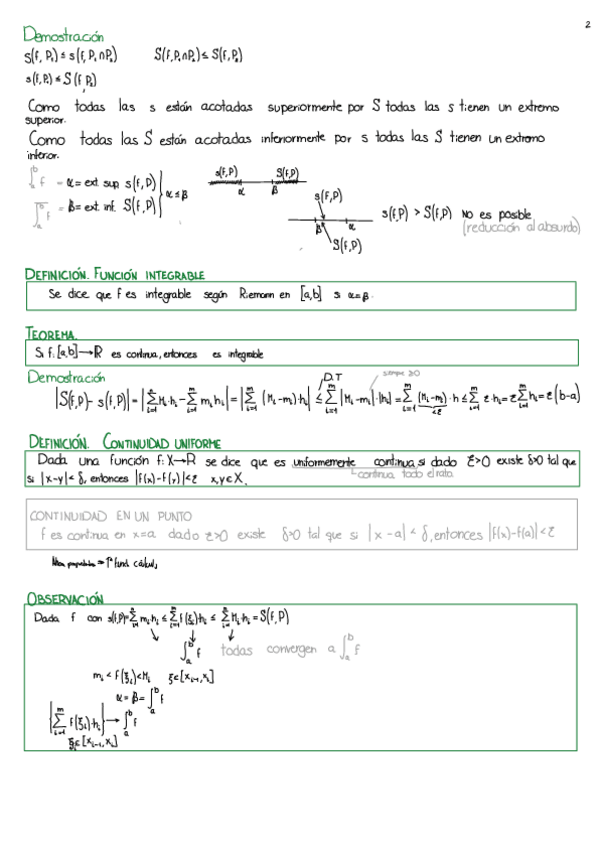 2
Demostración
s(f, P₁) ≤ s(f, P₁∩P₂)   S(f,P₁∩P₂) ≤ S(f,P₂)
s(f,P₁) ≤ S(f P₂)
Como todas las s están acotadas superiormente por S todas las s tienen un extremo
superior.
Como todas las S están acotadas inferiormente por s todas las S tienen un extremo
inferior.
∫ₐᵇ f = α = ext. sup s(f,P)
∫ₐᵇ f = β = ext. inf. S(f,P)   α ≤ β
s(f,P)   S(f,P)
α   β
s(f,P)
β   α   s(f,P) > S(f,P) No es posible
(reducción al absurdo)
S(f,P)
DEFINICIÓN. FUNCIÓN INTEGRABLE
Se dice que f es integrable según Riemann en [a,b] si α=β.
TEOREMA.
Si f: [a,b]→R es continua, entonces es integrable
Demostración
D.T   siempre ≥0
|S(f,P) - s(f,P)| = |Σ Mᵢ·hᵢ - Σ mᵢhᵢ| = |Σ (Mᵢ-mᵢ)·hᵢ| ≤ Σ |Mᵢ-mᵢ|·|hᵢ| = Σ (Mᵢ-mᵢ)·h ≤ Σ ε·hᵢ = ε Σ hᵢ = ε(b-a)
<ε
DEFINICIÓN. CONTINUIDAD UNIFORME
Dada una función f: X→R se dice que es uniformemente continua, si dado ε>0 existe δ>0 tal que
continua todo el rato.
si |x-y| < δ, entonces |f(x)-f(y)| < ε   x,y∈X.
CONTINUIDAD EN UN PUNTO
f es continua en x=a dado ε>0 existe δ>0 tal que si |x-a| < δ, entonces |f(x)-f(a)| < ε
OBSERVACIÓN
Dada f con s(f,P) = Σ mᵢhᵢ ≤ Σ f(ξᵢ)·hᵢ ≤ Σ Mᵢ·hᵢ = S(f,P)
∫ₐᵇ f   todas convergen a ∫ₐᵇ f
mᵢ < f(ξᵢ) < Mᵢ   ξ∈[xᵢ₋₁,xᵢ]
α = β = ∫ₐᵇ f
{Σ f(ξᵢ)·hᵢ} → ∫ₐᵇ f
ξᵢ∈[xᵢ₋₁,xᵢ]